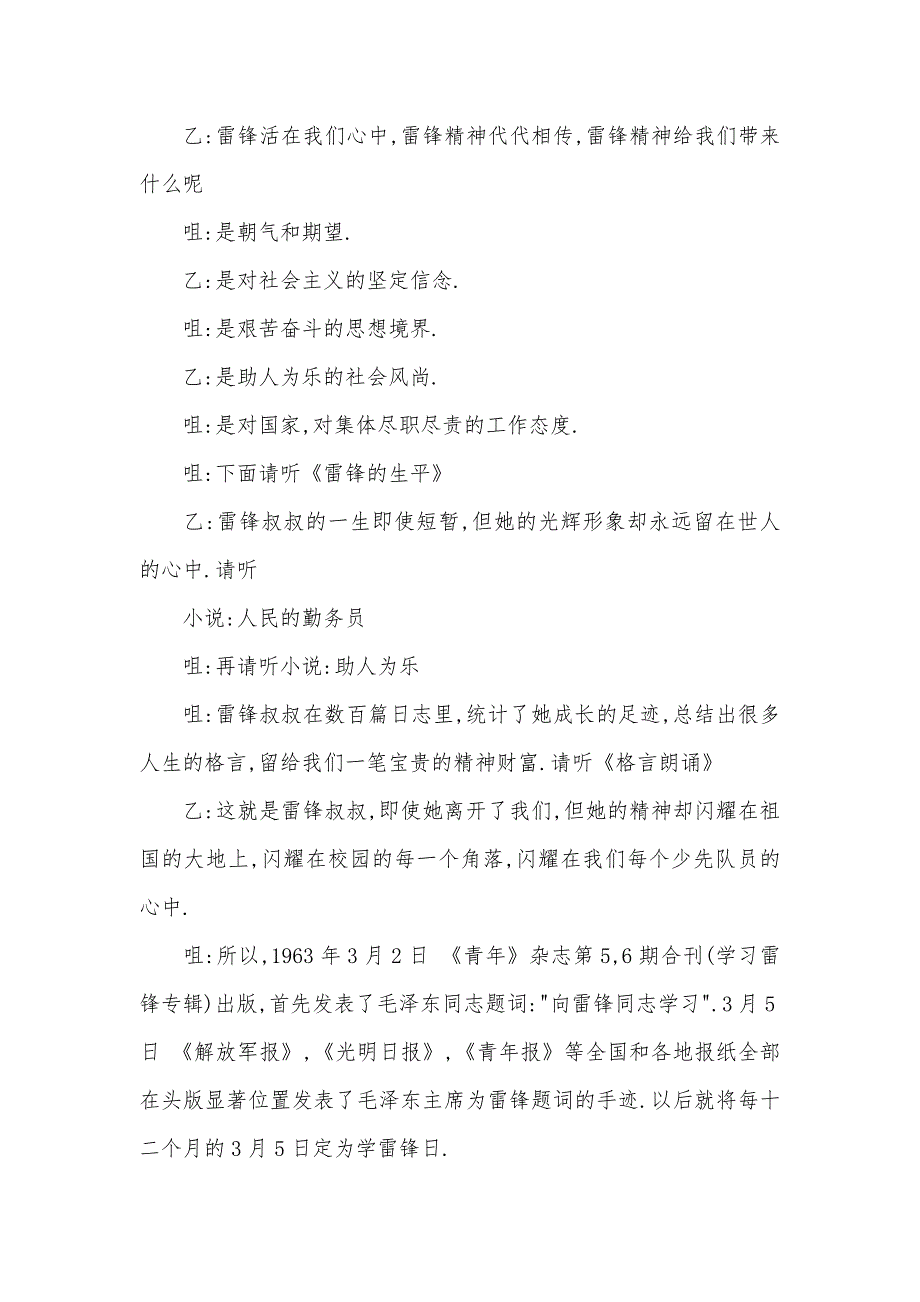 乙:雷锋活在我们心中,雷锋精神代代相传,雷锋精神给我们带来
什么呢
咀:是朝气和期望.
乙:是对社会主义的坚定信念.
咀:是艰苦奋斗的思想境界.
乙:是助人为乐的社会风尚.
咀:是对国家,对集体尽职尽责的工作态度.
咀:下面请听《雷锋的生平》
乙:雷锋叔叔的一生即使短暂,但她的光辉形象却永远留在世人
的心中.请听
小说:人民的勤务员
咀:再请听小说:助人为乐
咀:雷锋叔叔在数百篇日志里,统计了她成长的足迹,总结出很多
人生的格言,留给我们一笔宝贵的精神财富.请听《格言朗诵》
乙:这就是雷锋叔叔,即使她离开了我们,但她的精神却闪耀在祖
国的大地上,闪耀在校园的每一个角落,闪耀在我们每个少先队员的
心中.
咀:所以,1963 年 3 月 2 日 《青年》杂志第 5,6 期合刊(学习雷
锋专辑)出版,首先发表了毛泽东同志题词:"向雷锋同志学习".3 月 5
日 《解放军报》,《光明日报》,《青年报》等全国和各地报纸全部
在头版显著位置发表了毛泽东主席为雷锋题词的手迹.以后就将每十
二个月的 3 月 5 日定为学雷锋日.